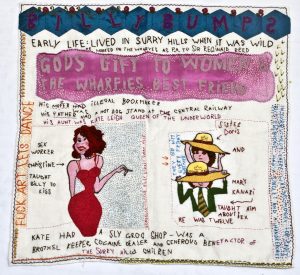 BILLY BUMPS
EARLY LIFE: LIVED IN SURRY HILLS WHEN IT WAS WILD
HE WORKED ON THE WHARVES AS EX TO SIR REGINALD REED
GODS GIFT TO WOMEN
THE WHARFIES BEST FRIEND
HIS MOTHER ILLEGAL BOOKMAKER
HIS FATHER HOT DOG STAND AT THE CENTRAL RAILWAY
HIS AUNT KATE LEIGH QUEEN OF THE UNDERWORLD
FUCK ART LETS DANCE
SEX
WORKER
CHRISTINE
TAUGHT
BILLY TO
KISS
SISTER
DORIS
AND
MARY
KANAZI
TAUGHT HIM
ABOUT SEX
HE WAS TWELVE
KATE HAD A SLY GROG SHOP - WAS A
BROTHEL KEEPER, COCAINE DEALER AND GENEROUS BENEFACTOR OF
THE SURRY HILLS CHILDREN